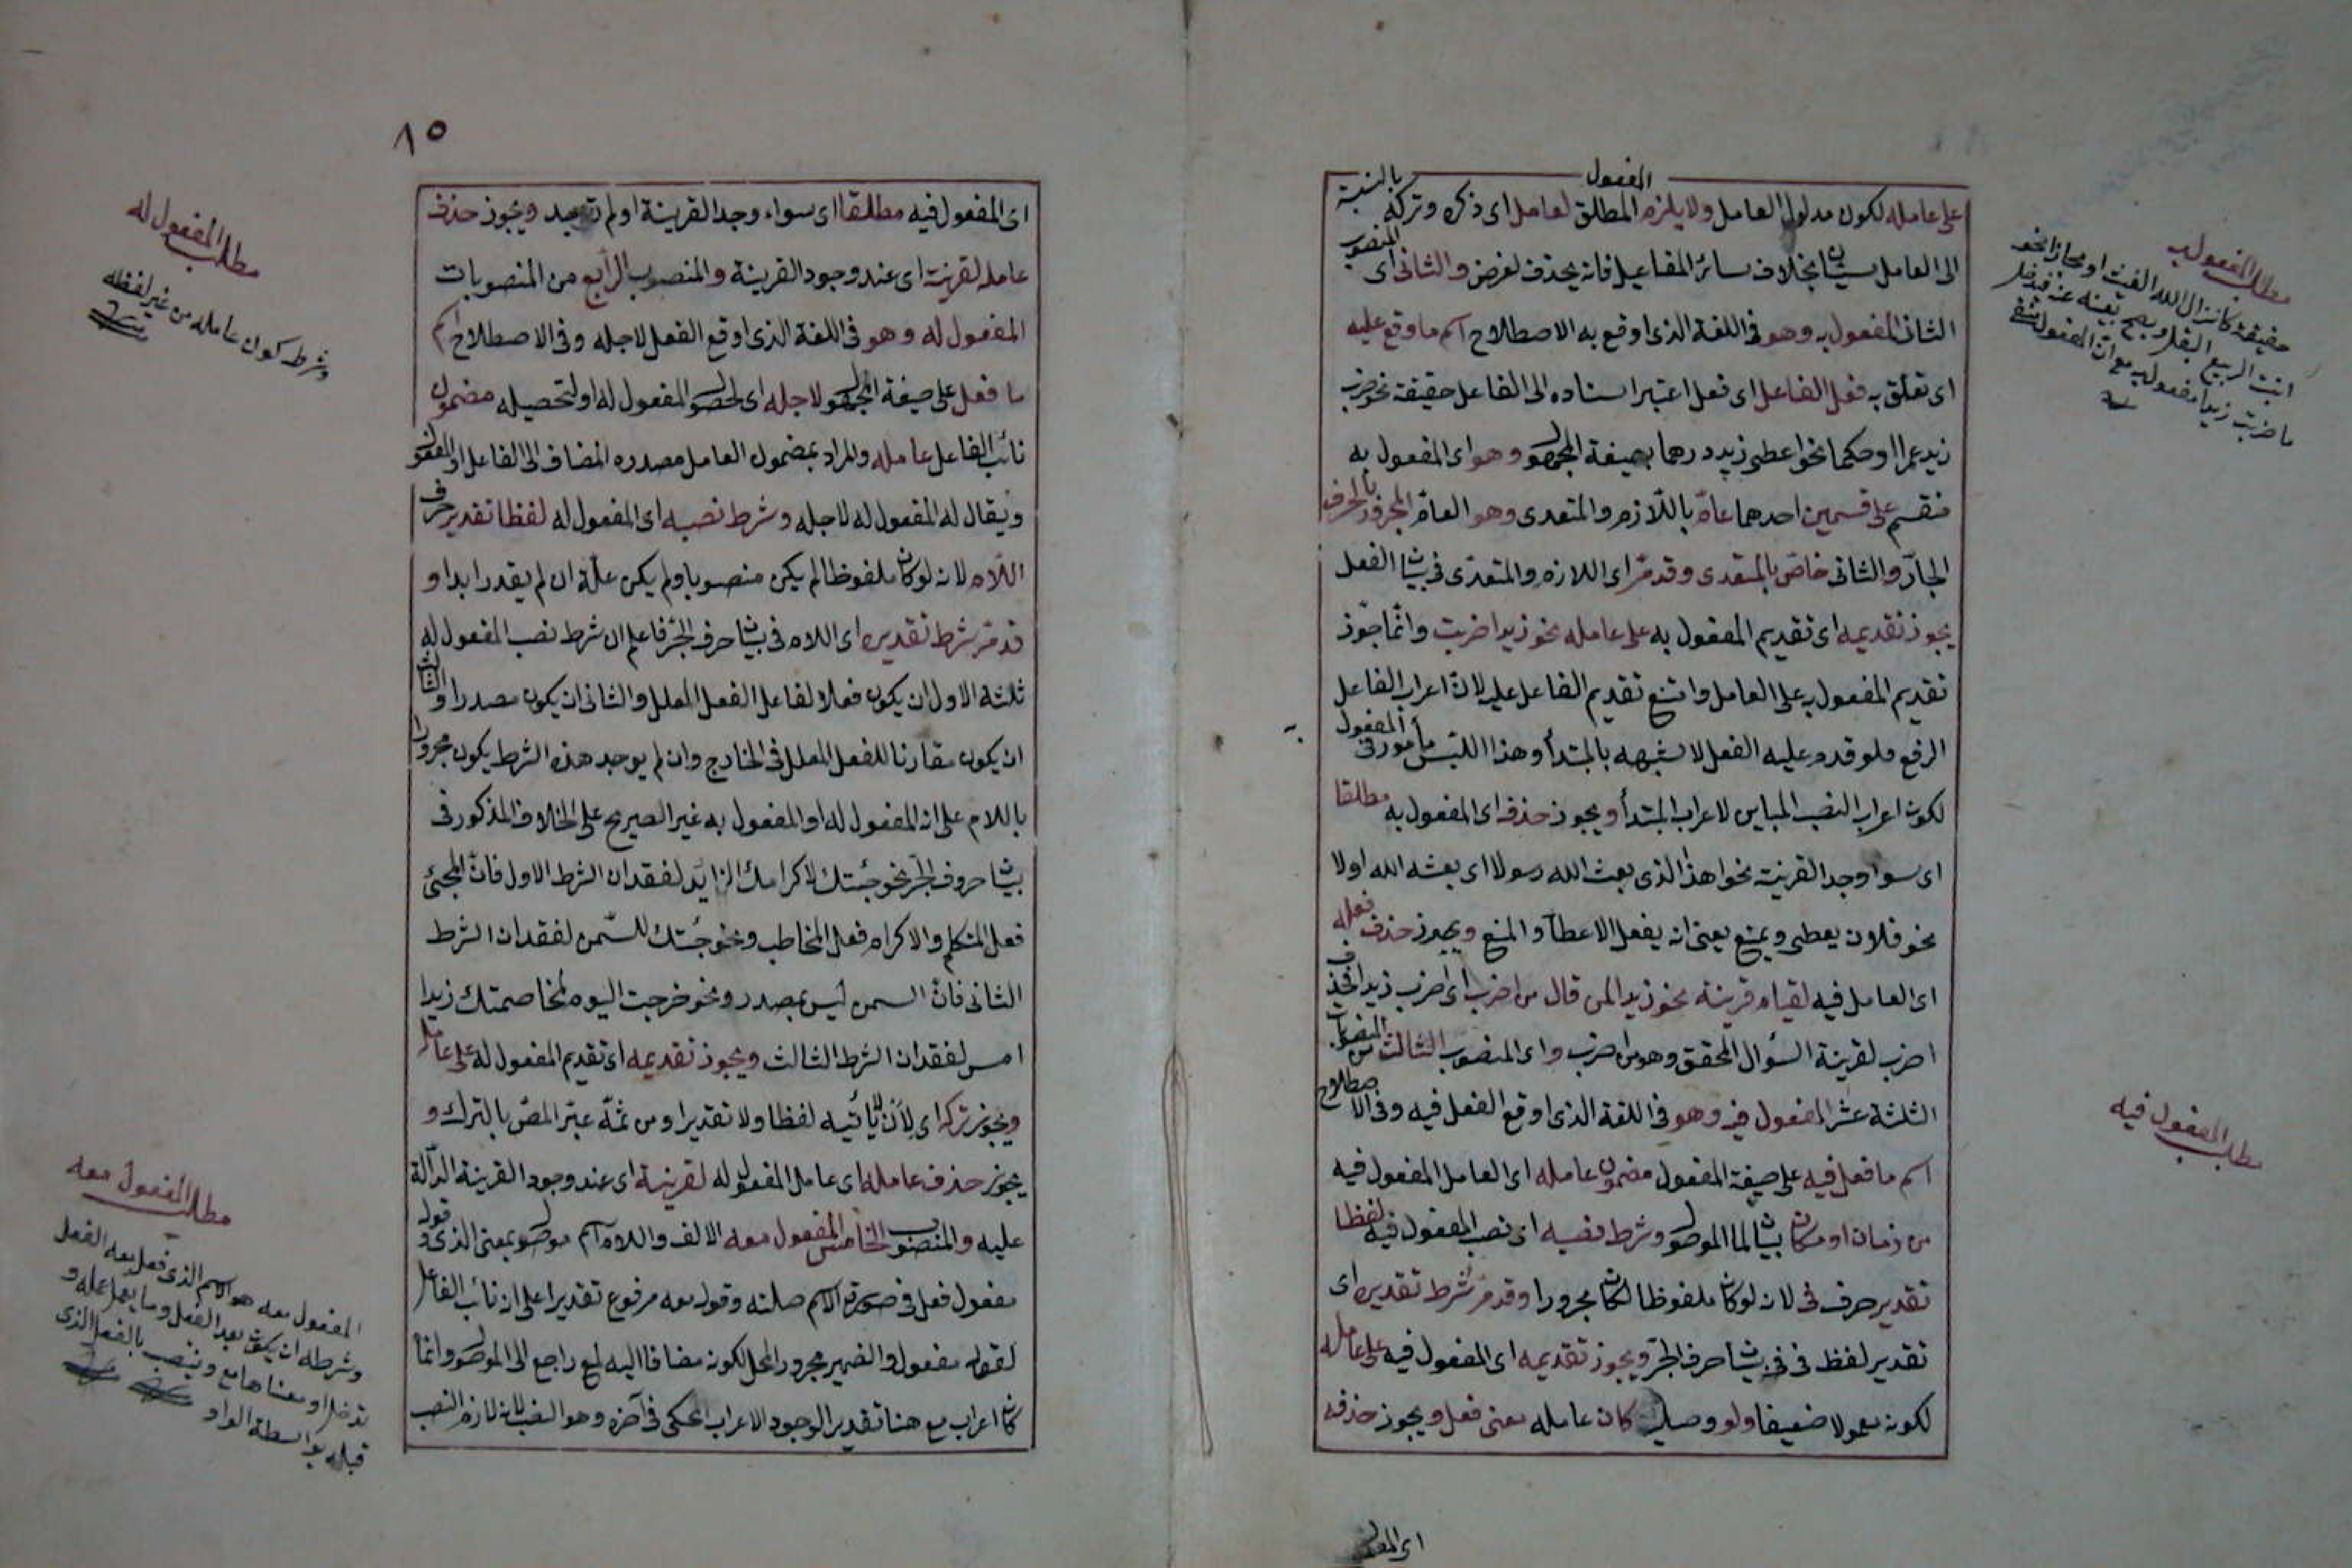 المفعول
على عامله لكون مدلول العامل ولا يلزم المطلق لعامل اى ذكره وتركه بالنسبة
الى العامل سيان بخلاف سائر المفاعيل فانه يحذف لغرض والثانى اى المنصوب
الثانى المفعول به وهو فى اللغة الذى اوقع به الاصطلاح اسم ما وقع عليه
اى تعلق به فعل الفاعل اى فعل اعتبر اسناده الى الفاعل حقيقة نحو ضرب
زيد عمرا او حكما نحو اعطى زيد درهما بصيغة المجهول وهو اى المفعول به
منقسم على قسمين احدهما عام باللازم والمتعدى وهو العام المجرور بالحرف
الجار والثانى خاص بالمتعدى وقد مر اى اللازم والمتعدى فى بيان الفعل
يجوز تقديمه اى تقديم المفعول به على عامله نحو زيدا ضربت وانما جوز
تقديم المفعول به على العامل وامتنع تقديم الفاعل عليه لان اعراب الفاعل
الرفع فلو قدم عليه الفعل لاشتبه بالمبتدأ وهذا اللبس مأمور فى المفعول
لكون اعراب النصب المباين لاعراب المبتدأ ويجوز حذفه اى المفعول به مطلقا
اى سوا وجد القرينة نحو اهذا الذى بعث الله رسولا اى بعثه الله اولا
نحو فلان يعطى ويمنع يعنى انه يفعل الاعطآ والمنع ويجوز حذف فعله
اى العامل فيه لقيام قرينة نحو زيدا لمن قال من اضرب اى اضرب زيدا فحذف
اضرب لقرينة السؤال المحقق وهو من اضرب واى المنصوب الثالث من المنصوبات
الثلثة عشر المفعول فيه وهو فى اللغة الذى اوقع الفعل فيه وفى الاصطلاح
اسم ما فعل فيه على صيغة المفعول مضمون عامله اى العامل المفعول فيه
من زمان او مكان بيان لما الموصول وشرط نصبه اى نصب المفعول فيه لفظا
تقدير حرف فى لانه لو كان ملفوظا لكان مجرورا وقد مر شرط تقديره اى
تقدير لفظ فى فى بيان حرف الجر ويجوز تقديمه اى المفعول فيه على عامله
لكونه معمولا ضعيفا ولو وصلية كان عامله معنى فعل ويجوز حذفه
اى المفعول
مطلب المفعول به
حقيقة كانزال الله الغيث او مجازا نحو
انبت الربيع البقل ويصح نفيه عنه فدخل
ما ضربت زيدا مفعول به مع ان المفعول
مطلب المفعول فيه
١٥
اى المفعول فيه مطلقا اى سواء وجد القرينة اولم توجد ويجوز حذف
عامله لقرينة اى عند وجود القرينة والمنصوب الرابع من المنصوبات
المفعول له وهو فى اللغة الذى اوقع الفعل لاجله وفى الاصطلاح اسم
ما فعل على صيغة المجهول لاجله اى لحصول المفعول له او لتحصيله مضمون
نائب الفاعل عامله والمراد بمضمون العامل مصدره المضاف الى الفاعل او المفعول
ويقال له المفعول له لاجله وشرط نصبه اى المفعول له لفظا تقدير حرف
اللام لانه لو كان ملفوظا لم يكن منصوبا ولم يكن علة ان لم يقدر ابدا و
قد مر شرط تقديره اى اللام فى بيان حرف الجر فاعلم ان شرط نصب المفعول له
ثلثة الاول ان يكون فعلا لفاعل الفعل المعلل والثانى ان يكون مصدرا والثالث
ان يكون مقارنا للفعل المعلل فى الخارج وان لم يوجد هذه الشرط يكون مجرورا
باللام على انه المفعول له او المفعول به غير الصريح على الخلاف المذكور فى
بيان حروف الجر نحو جئتك لاكرامك الزايد لفقدان الشرط الاول فان المجئ
فعل المتكلم والاكرام فعل المخاطب ونحو جئتك للسمن لفقدان الشرط
الثانى فان السمن ليس بمصدر ونحو خرجت اليوم لمخاصمتك زيدا
امس لفقدان الشرط الثالث ويجوز تقديمه اى تقديم المفعول له على عامله
ويجوز تركه اى لان لا يأتيه لفظا ولا تقديرا ومن ثمة عبر المص بالترك و
يجوز حذف عامله اى عامل المفعول له لقرينة اى عند وجود القرينة الدالة
عليه والمنصوب الخامس المفعول معه الالف واللام اسم موصول بمعنى الذى وقوله
مفعول فعل فى صورة الاسم صلته وقوله معه مرفوع تقديرا على انه نائب الفاعل
لقوله مفعول والضمير مجرور المحل لكونه مضافا اليه لمع راجع الى الموصول وانما
كان اعراب مع هنا تقديرا لوجود الاعراب المحكى فى آخره وهو النصب لانه لازم النصب
مطلب المفعول له
وشرط كون عامله من غير لفظه
مطلب المفعول معه
المفعول معه هو الاسم الذى فعل معه الفعل
وشرطه ان يكون بعد الفعل وما يعمل عمله و
تدخل او معناها مع وينتصب بالفعل الذى
قبله بواسطة الواو